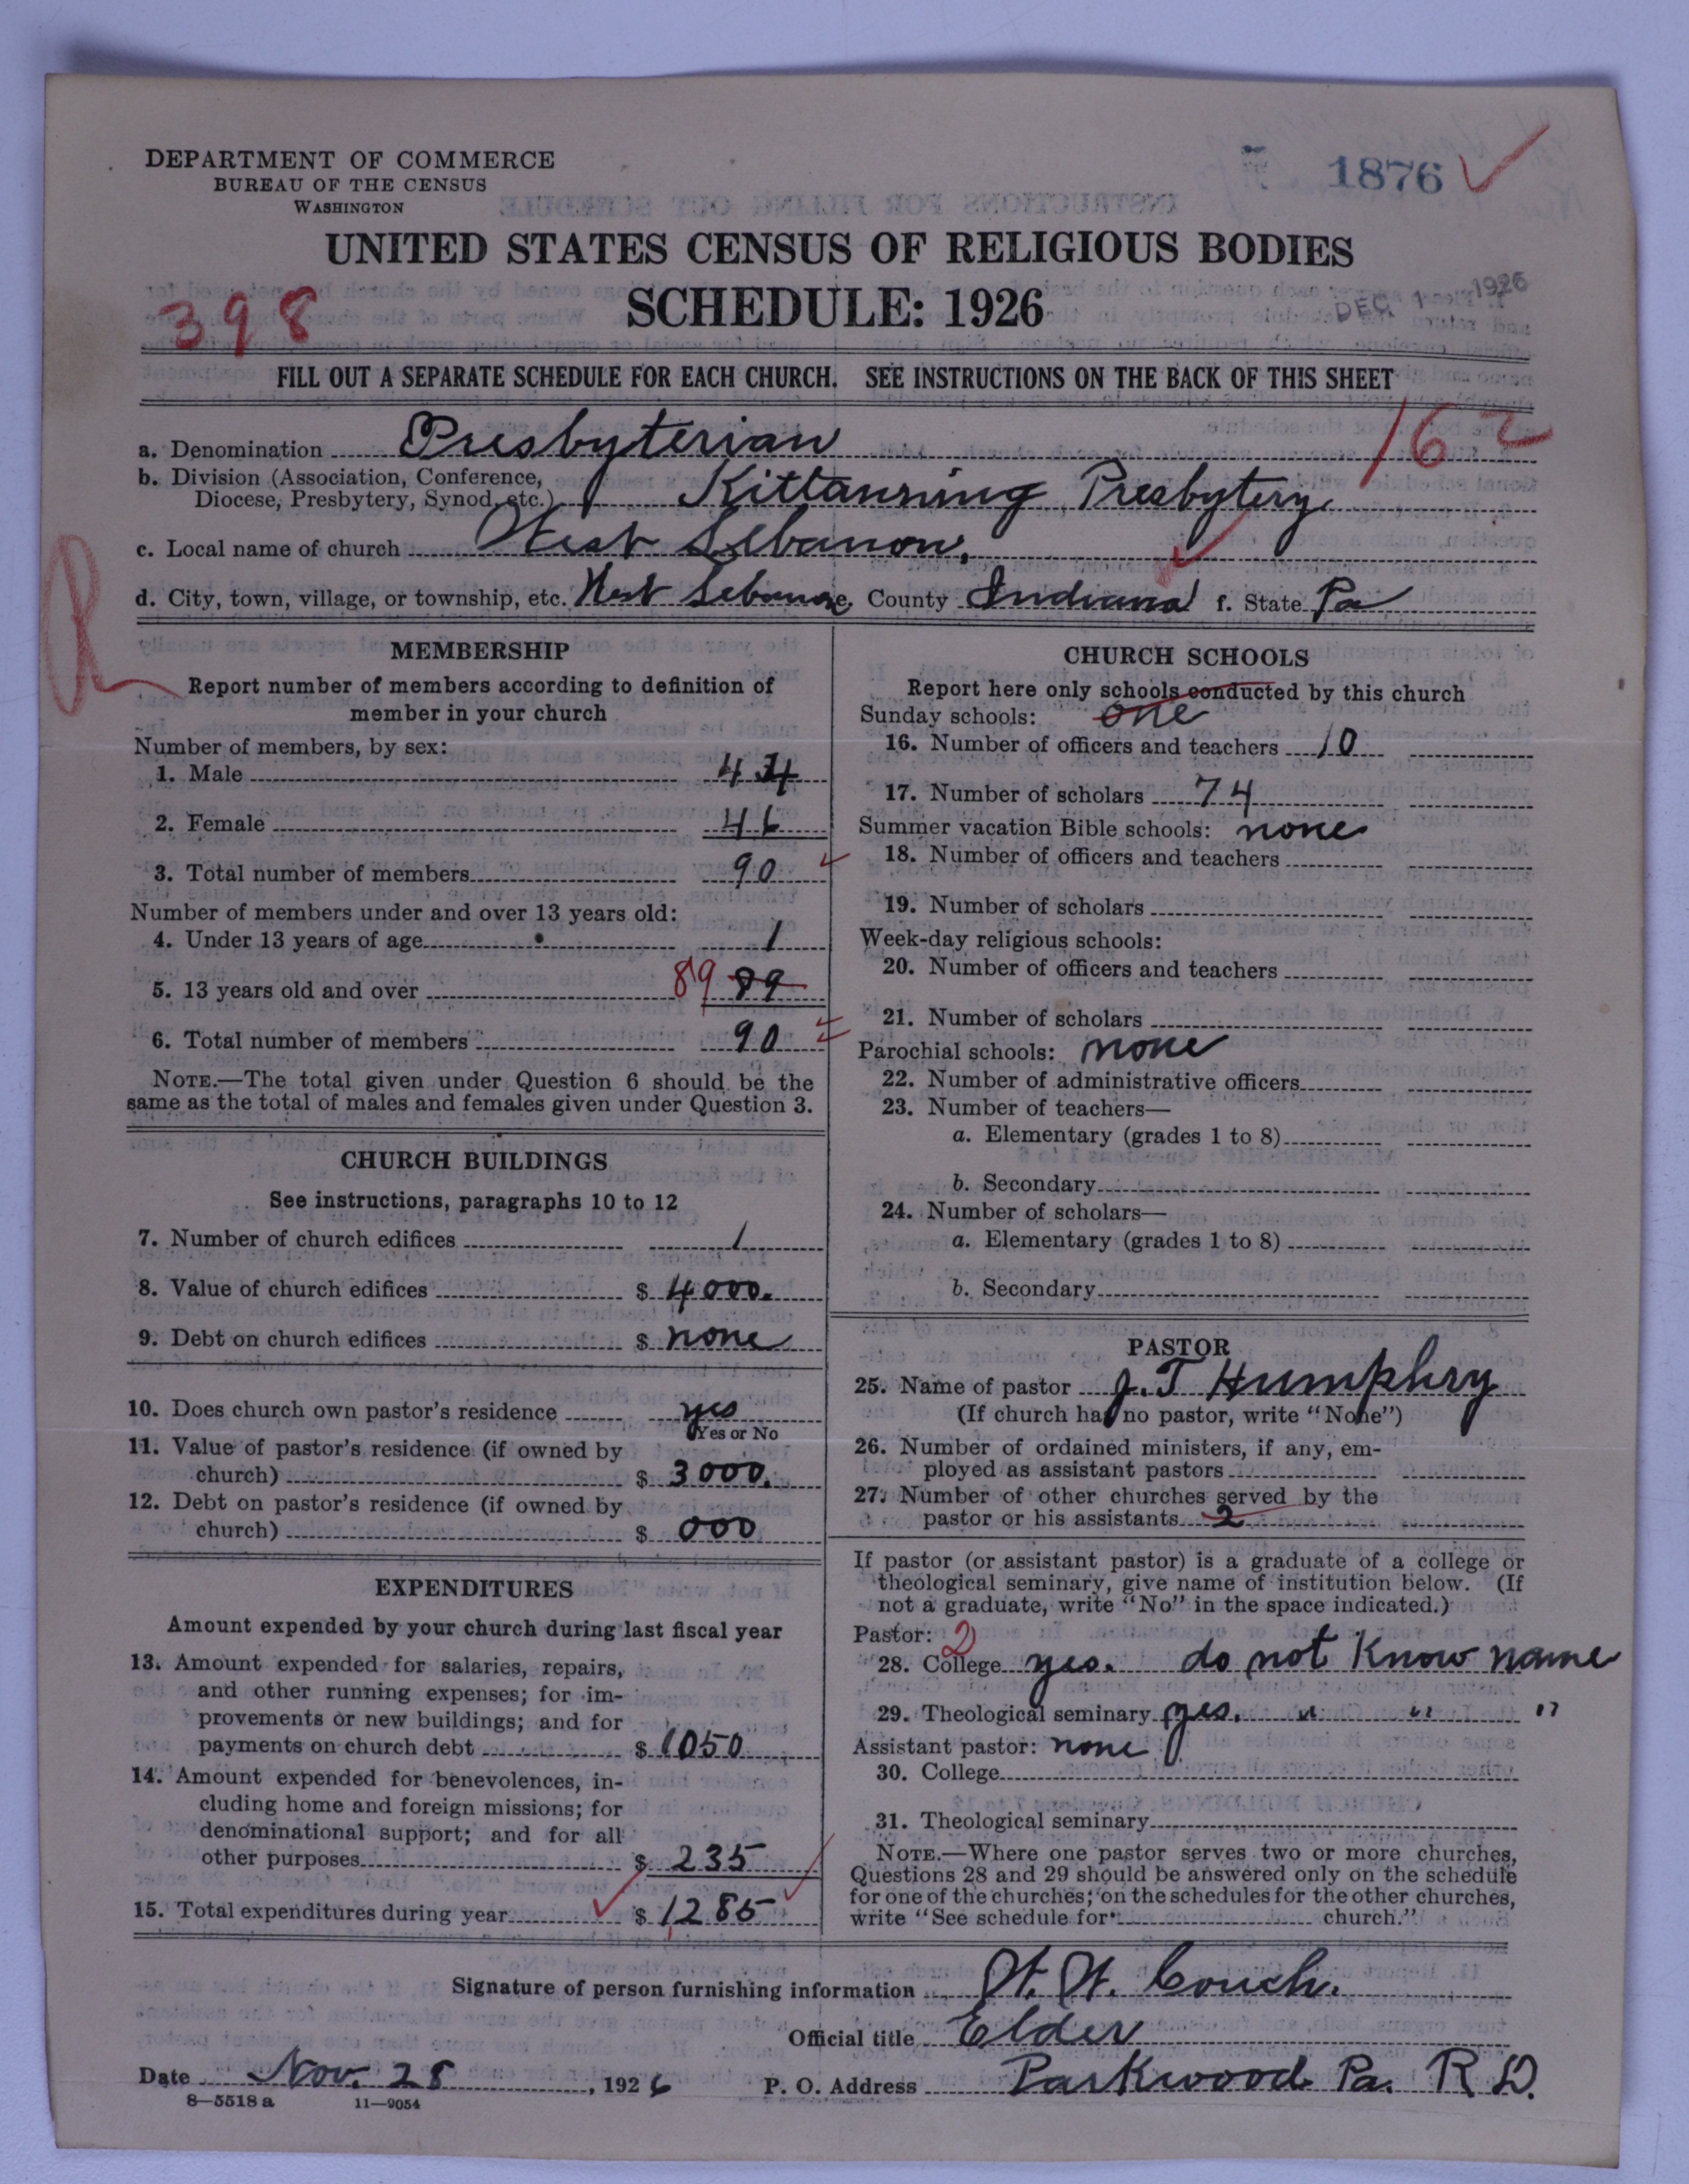 DEPARTMENT OF COMMERCE
BUREAU OF THE CENSUS
WASHINGTON
1876
UNITED STATES CENSUS OF RELIGIOUS BODIES
SCHEDULE: 1926
398
DEC 1 1926
FILL OUT A SEPARATE SCHEDULE FOR EACH CHURCH. SEE INSTRUCTIONS ON THE BACK OF THIS SHEET
162
a. Denomination Presbyterian
b. Division (Association, Conference,
Diocese, Presbytery, Synod, etc.) Kittanning Presbytery.
c. Local name of church West Lebanon,
d. City, town, village, or township, etc. West Lebanon e. County Indiana f. State Pa
R
MEMBERSHIP
Report number of members according to definition of
member in your church
Number of members, by sex:
1. Male 44
2. Female 46
3. Total number of members 90
Number of members under and over 13 years old:
4. Under 13 years of age 1
5. 13 years old and over 89 89
6. Total number of members 90
NOTE.—The total given under Question 6 should be the
same as the total of males and females given under Question 3.
CHURCH BUILDINGS
See instructions, paragraphs 10 to 12
7. Number of church edifices 1
8. Value of church edifices $ 4000.
9. Debt on church edifices $ none
10. Does church own pastor's residence yes
Yes or No
11. Value of pastor's residence (if owned by
church) $ 3000.
12. Debt on pastor's residence (if owned by
church) $ 000
EXPENDITURES
Amount expended by your church during last fiscal year
13. Amount expended for salaries, repairs,
and other running expenses; for im-
provements or new buildings; and for
payments on church debt $ 1050
14. Amount expended for benevolences, in-
cluding home and foreign missions; for
denominational support; and for all
other purposes $ 235
15. Total expenditures during year $ 1285
CHURCH SCHOOLS
Report here only schools conducted by this church
Sunday schools: one
16. Number of officers and teachers 10
17. Number of scholars 74
Summer vacation Bible schools: none
18. Number of officers and teachers
19. Number of scholars
Week-day religious schools:
20. Number of officers and teachers
21. Number of scholars
Parochial schools: none
22. Number of administrative officers
23. Number of teachers—
a. Elementary (grades 1 to 8)
b. Secondary
24. Number of scholars—
a. Elementary (grades 1 to 8)
b. Secondary
PASTOR
25. Name of pastor J. T Humphry
(If church has no pastor, write "None")
26. Number of ordained ministers, if any, em-
ployed as assistant pastors
27. Number of other churches served by the
pastor or his assistants 2
If pastor (or assistant pastor) is a graduate of a college or
theological seminary, give name of institution below. (If
not a graduate, write "No" in the space indicated.)
Pastor: 2
28. College yes. do not know name
29. Theological seminary yes. " " "
Assistant pastor: none
30. College
31. Theological seminary
NOTE.—Where one pastor serves two or more churches,
Questions 28 and 29 should be answered only on the schedule
for one of the churches; on the schedules for the other churches,
write "See schedule for church."
Signature of person furnishing information W. W. Couch.
Official title Elder
Date Nov. 28, 1926 P. O. Address Parkwood Pa. R D.
8—5518 a 11—9054